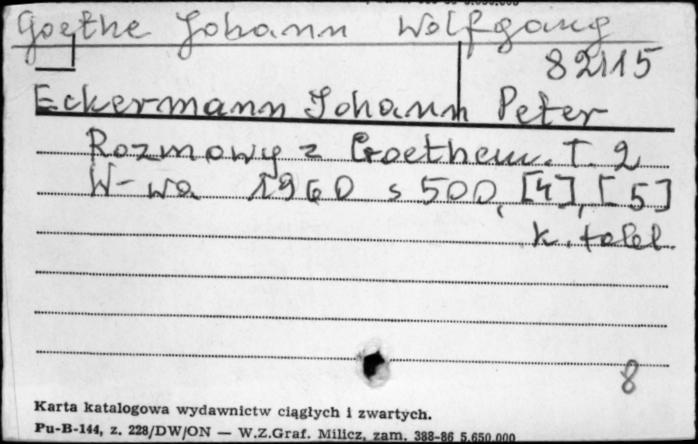 Goethe Johann Wolfgang
82115
Eckermann Johann Peter
Rozmowy z Goethem. T. 2
W-wa 1960 s 500, [4], [5]
k. tabl.
8
Karta katalogowa wydawnictw ciągłych i zwartych.
Pu-B-144, z. 228/DW/ON — W.Z.Graf. Milicz, zam. 388-86 5.650.000